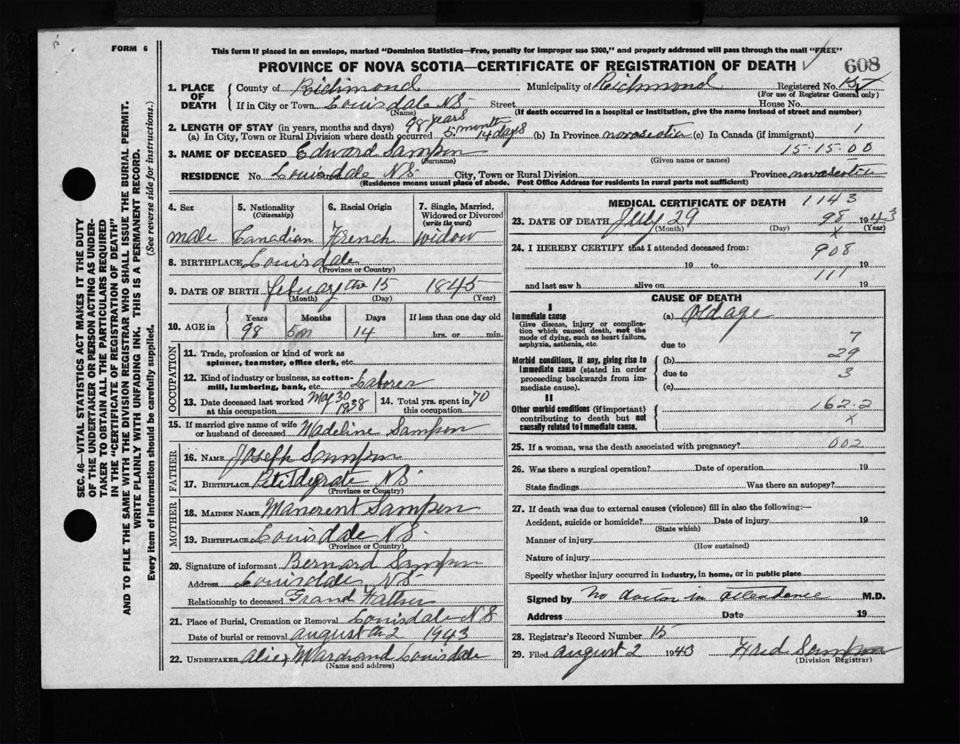 FORM 6
This form if placed in an envelope, marked "Dominion Statistics—Free, penalty for improper use $300," and properly addressed will pass through the mail "FREE"
PROVINCE OF NOVA SCOTIA—CERTIFICATE OF REGISTRATION OF DEATH
608
SEC. 46—VITAL STATISTICS ACT MAKES IT THE DUTY
OF THE UNDERTAKER OR PERSON ACTING AS UNDER-
TAKER TO OBTAIN ALL THE PARTICULARS REQUIRED
IN THE "CERTIFICATE OF REGISTRATION OF DEATH"
AND TO FILE THE SAME WITH THE DIVISION REGISTRAR WHO SHALL ISSUE THE BURIAL PERMIT.
WRITE PLAINLY WITH UNFADING INK. THIS IS A PERMANENT RECORD.
Every item of information should be carefully supplied. (See reverse side for instructions.)
1. PLACE OF DEATH
County of Richmond Municipality of Richmond Registered No. 15
(For use of Registrar General only)
If in City or Town Louisdale N.S. Street House No.
(Name) (If death occurred in a hospital or institution, give the name instead of street and number)
2. LENGTH OF STAY (in years, months and days) 98 years
(a) In City, Town or Rural Division where death occurred 5 month 14 days (b) In Province novascotia (c) In Canada (if immigrant) 1
3. NAME OF DECEASED Edward Sampson 15-15-00
(Surname) (Given name or names)
RESIDENCE No. Louisdale N.S. City, Town or Rural Division Province novascotia
(Residence means usual place of abode. Post Office Address for residents in rural parts not sufficient)
4. Sex 5. Nationality (Citizenship) 6. Racial Origin 7. Single, Married, Widowed or Divorced (write the word)
male Canadian French widow
8. BIRTHPLACE Louisdale
(Province or Country)
9. DATE OF BIRTH Febuary the 15 1845
(Month) (Day) (Year)
10. AGE in Years Months Days If less than one day old
98 5m 14 hrs. or min.
OCCUPATION
11. Trade, profession or kind of work as spinner, teamster, office clerk, etc.
12. Kind of industry or business, as cotton-mill, lumbering, bank, etc. Laborer
13. Date deceased last worked at this occupation May 30 1938 14. Total yrs. spent in this occupation 70
15. If married give name of wife or husband of deceased Madeline Sampson
FATHER
16. NAME Joseph Sampson
17. BIRTHPLACE Petitdegrate N.S.
(Province or Country)
MOTHER
18. MAIDEN NAME Sampson
19. BIRTHPLACE Louisdale N.S.
(Province or Country)
20. Signature of informant Bernard Sampson
Address Louisdale N.S.
Relationship to deceased Grand Father
21. Place of Burial, Cremation or Removal Louisdale N.S.
Date of burial or removal august the 2 1943
22. UNDERTAKER Louisdale
(Name and address)
MEDICAL CERTIFICATE OF DEATH 1143
23. DATE OF DEATH July 29 98 1943
(Month) (Day) (Year)
x
24. I HEREBY CERTIFY that I attended deceased from:
908
19 to 19
111
and last saw h alive on 19
CAUSE OF DEATH
I
Immediate cause
Give disease, injury or complication which caused death, not the mode of dying, such as heart failure, asphyxia, asthenia, etc.
(a) Old age
due to 7
Morbid conditions, if any, giving rise to immediate cause (stated in order proceeding backwards from immediate cause).
(b) 29
due to 3
(c)
II
Other morbid conditions (if important) contributing to death but not causally related to immediate cause.
162.2
x
25. If a woman, was the death associated with pregnancy? 002
26. Was there a surgical operation? Date of operation 19
State findings Was there an autopsy?
27. If death was due to external causes (violence) fill in also the following:—
Accident, suicide or homicide? Date of injury 19
(State which)
Manner of injury
(How sustained)
Nature of injury
Specify whether injury occurred in industry, in home, or in public place
Signed by no doctor in attendance M.D.
Address Date 19
28. Registrar's Record Number 15
29. Filed august 2 1943 Fred Sampson
(Division Registrar)